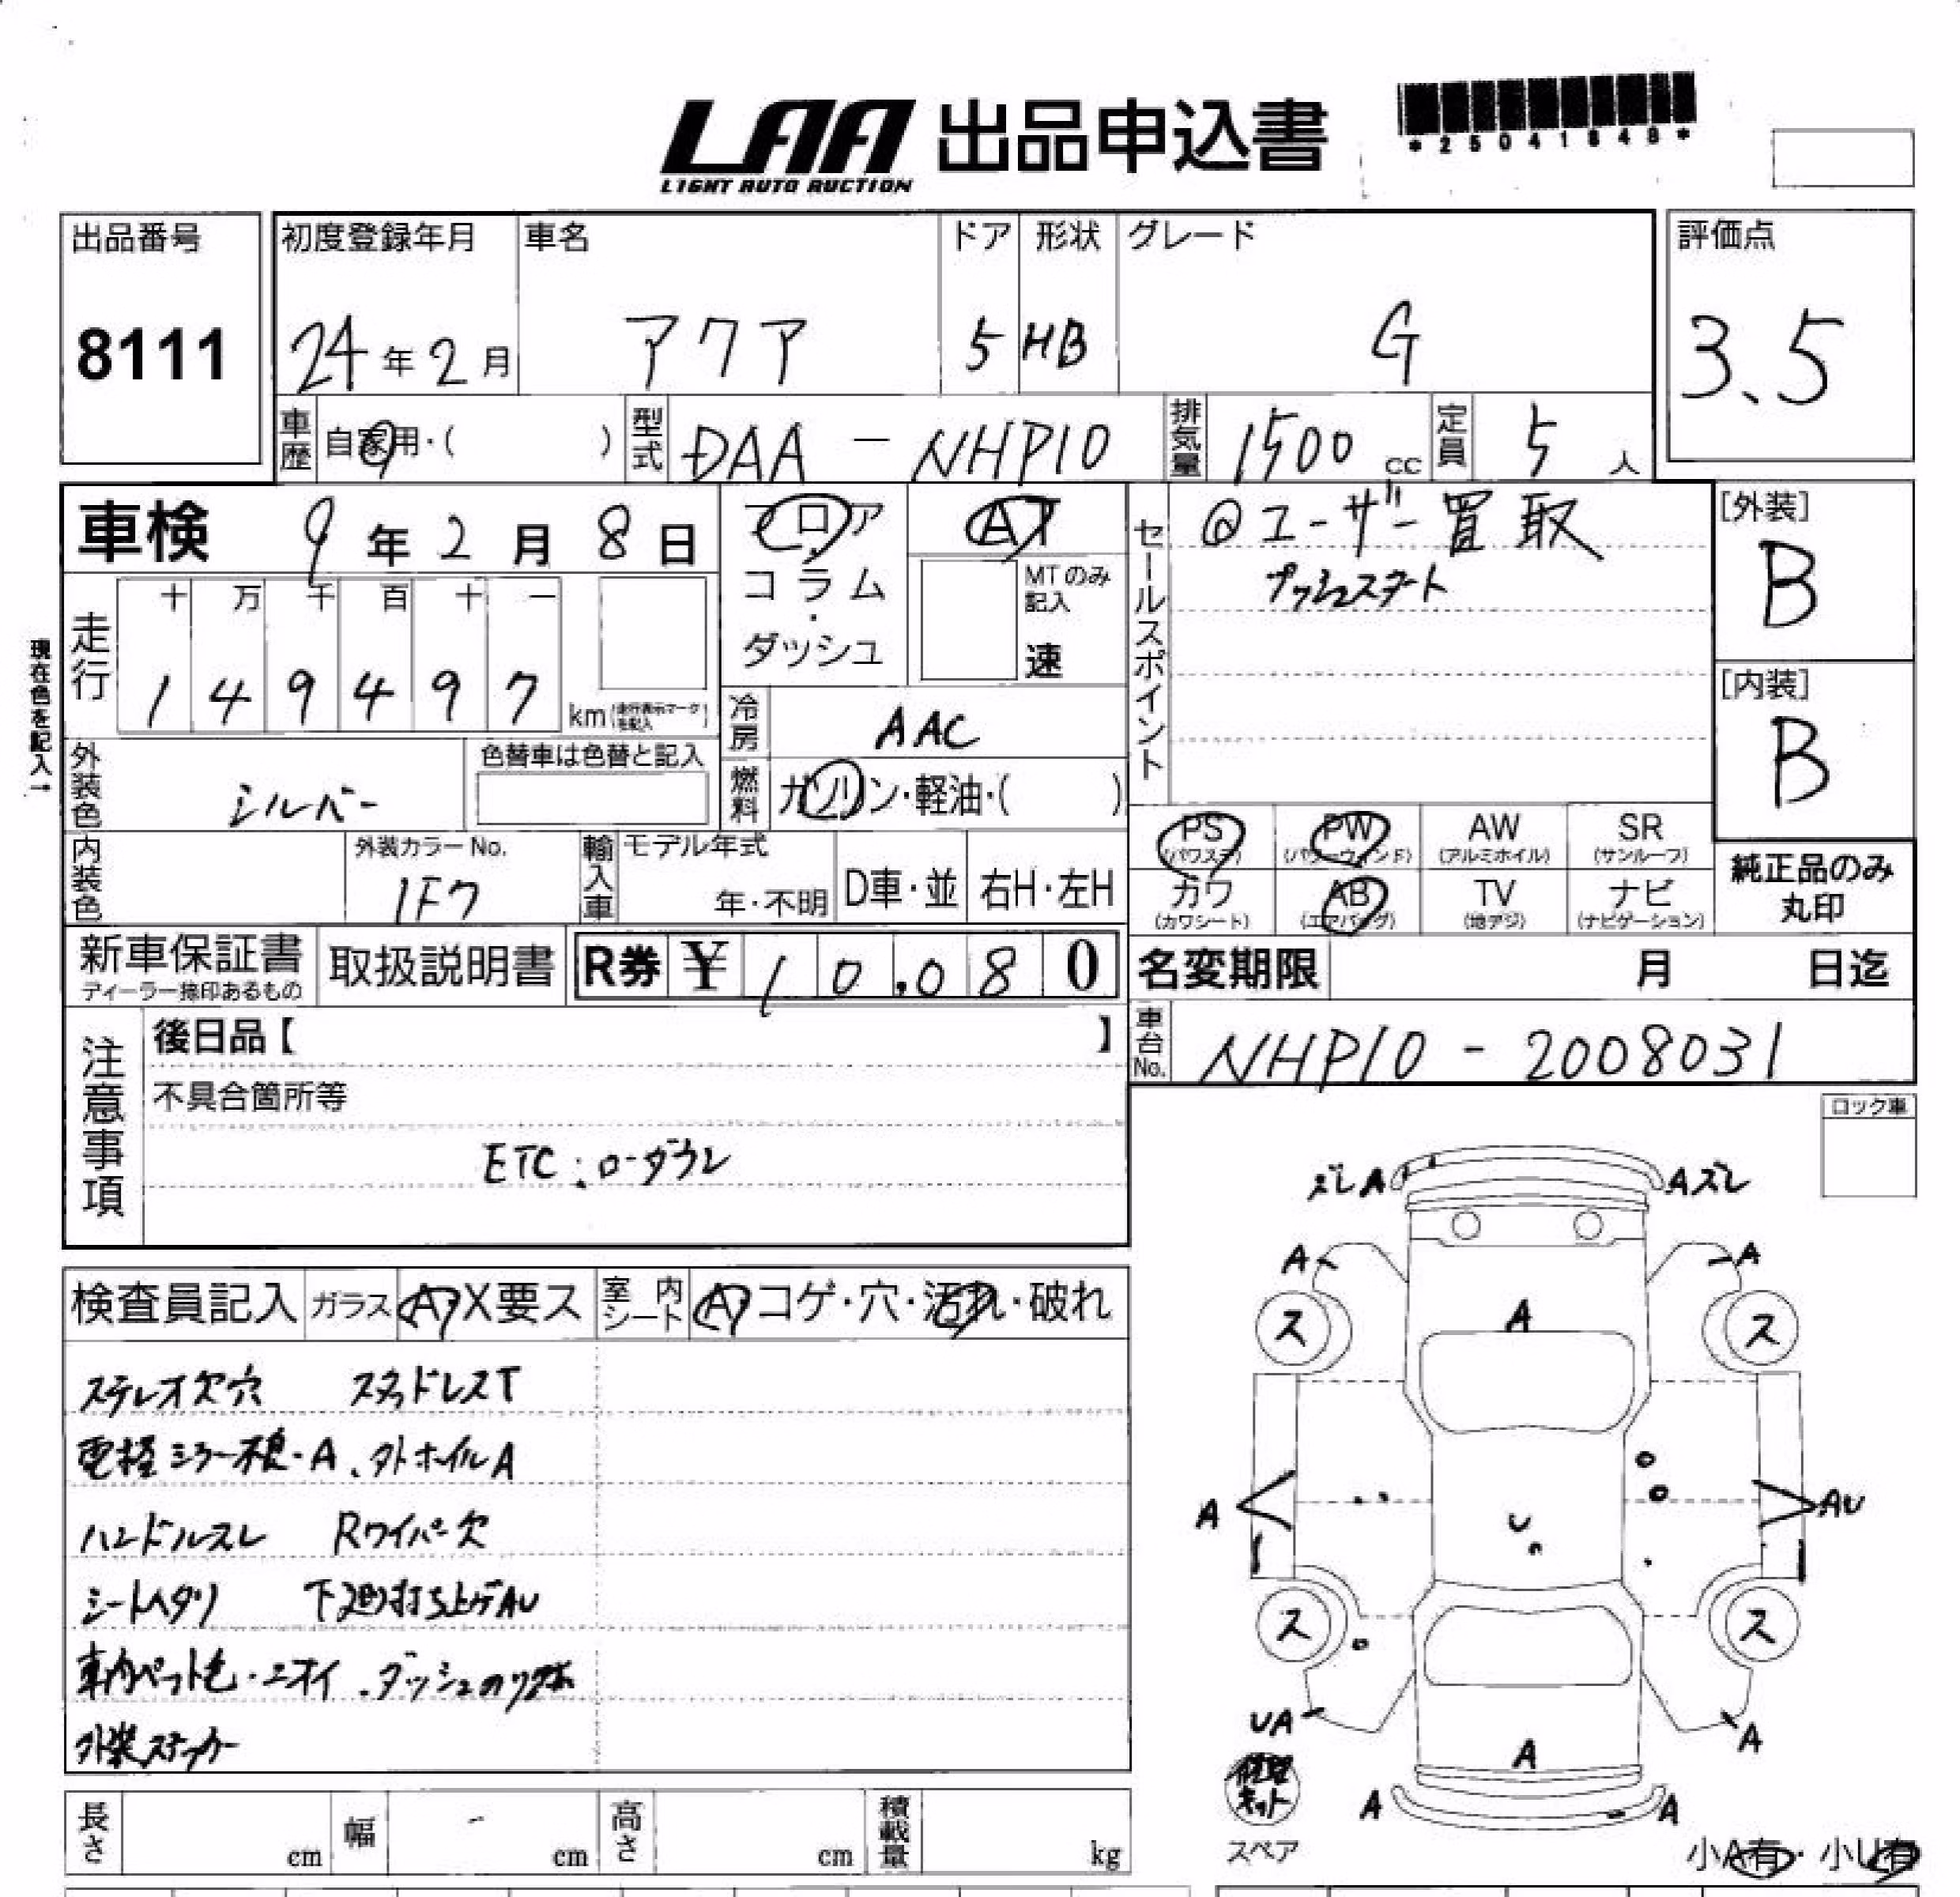 LAA 出品申込書
LIGHT AUTO AUCTION
*25041848*
出品番号
8111
初度登録年月
24年2月
車名
アクア
ドア
5
形状
HB
グレード
G
評価点
3.5
車歴 自家用・( )
型式 DAA - NHP10
排気量 1500 cc
定員 5 人
車検 9年2月8日
フロア・コラム・ダッシュ
AT
MTのみ記入
速
セールスポイント
@ユーザー買取
プッシュスタート
[外装]
B
[内装]
B
現在色を記入→
走行
十 万 千 百 十 一
1 4 9 4 9 7 km (走行表示マークを記入)
冷房 AAC
燃料 ガソリン・軽油・( )
外装色 シルバー
色替車は色替と記入
内装色
外装カラーNo.
1F7
輸入車 モデル年式
年・不明 D車・並 右H・左H
PS (パワステ)
PW (パワーウィンド)
AW (アルミホイル)
SR (サンルーフ)
カワ (カワシート)
AB (エアバッグ)
TV (地デジ)
ナビ (ナビゲーション)
純正品のみ丸印
新車保証書
ディーラー捺印あるもの
取扱説明書
R券 ¥ 10.080
名変期限 月 日迄
車台No. NHP10 - 2008031
注意事項
後日品【 】
不具合箇所等
ETC:ローダウン
ロック車
検査員記入 ガラス A・X要ス 室内シート A・コゲ・穴・汚れ・破れ
ステレオ欠穴 スタッドレスT
電格ミラー不良・A、外ホイルA
ハンドルスレ Rワイパー欠
シートヘタリ 下廻り打ち上げAU
車内ペット毛・ニオイ、ダッシュのリ
外装ステッカー
ズレA
Aズレ
A
A
A
ス
ス
A
AU
U
ス
ス
UA
A
A
A
A
修理キット
スペア
小A有・小U有
長さ cm 幅 - cm 高さ cm 積載量 kg